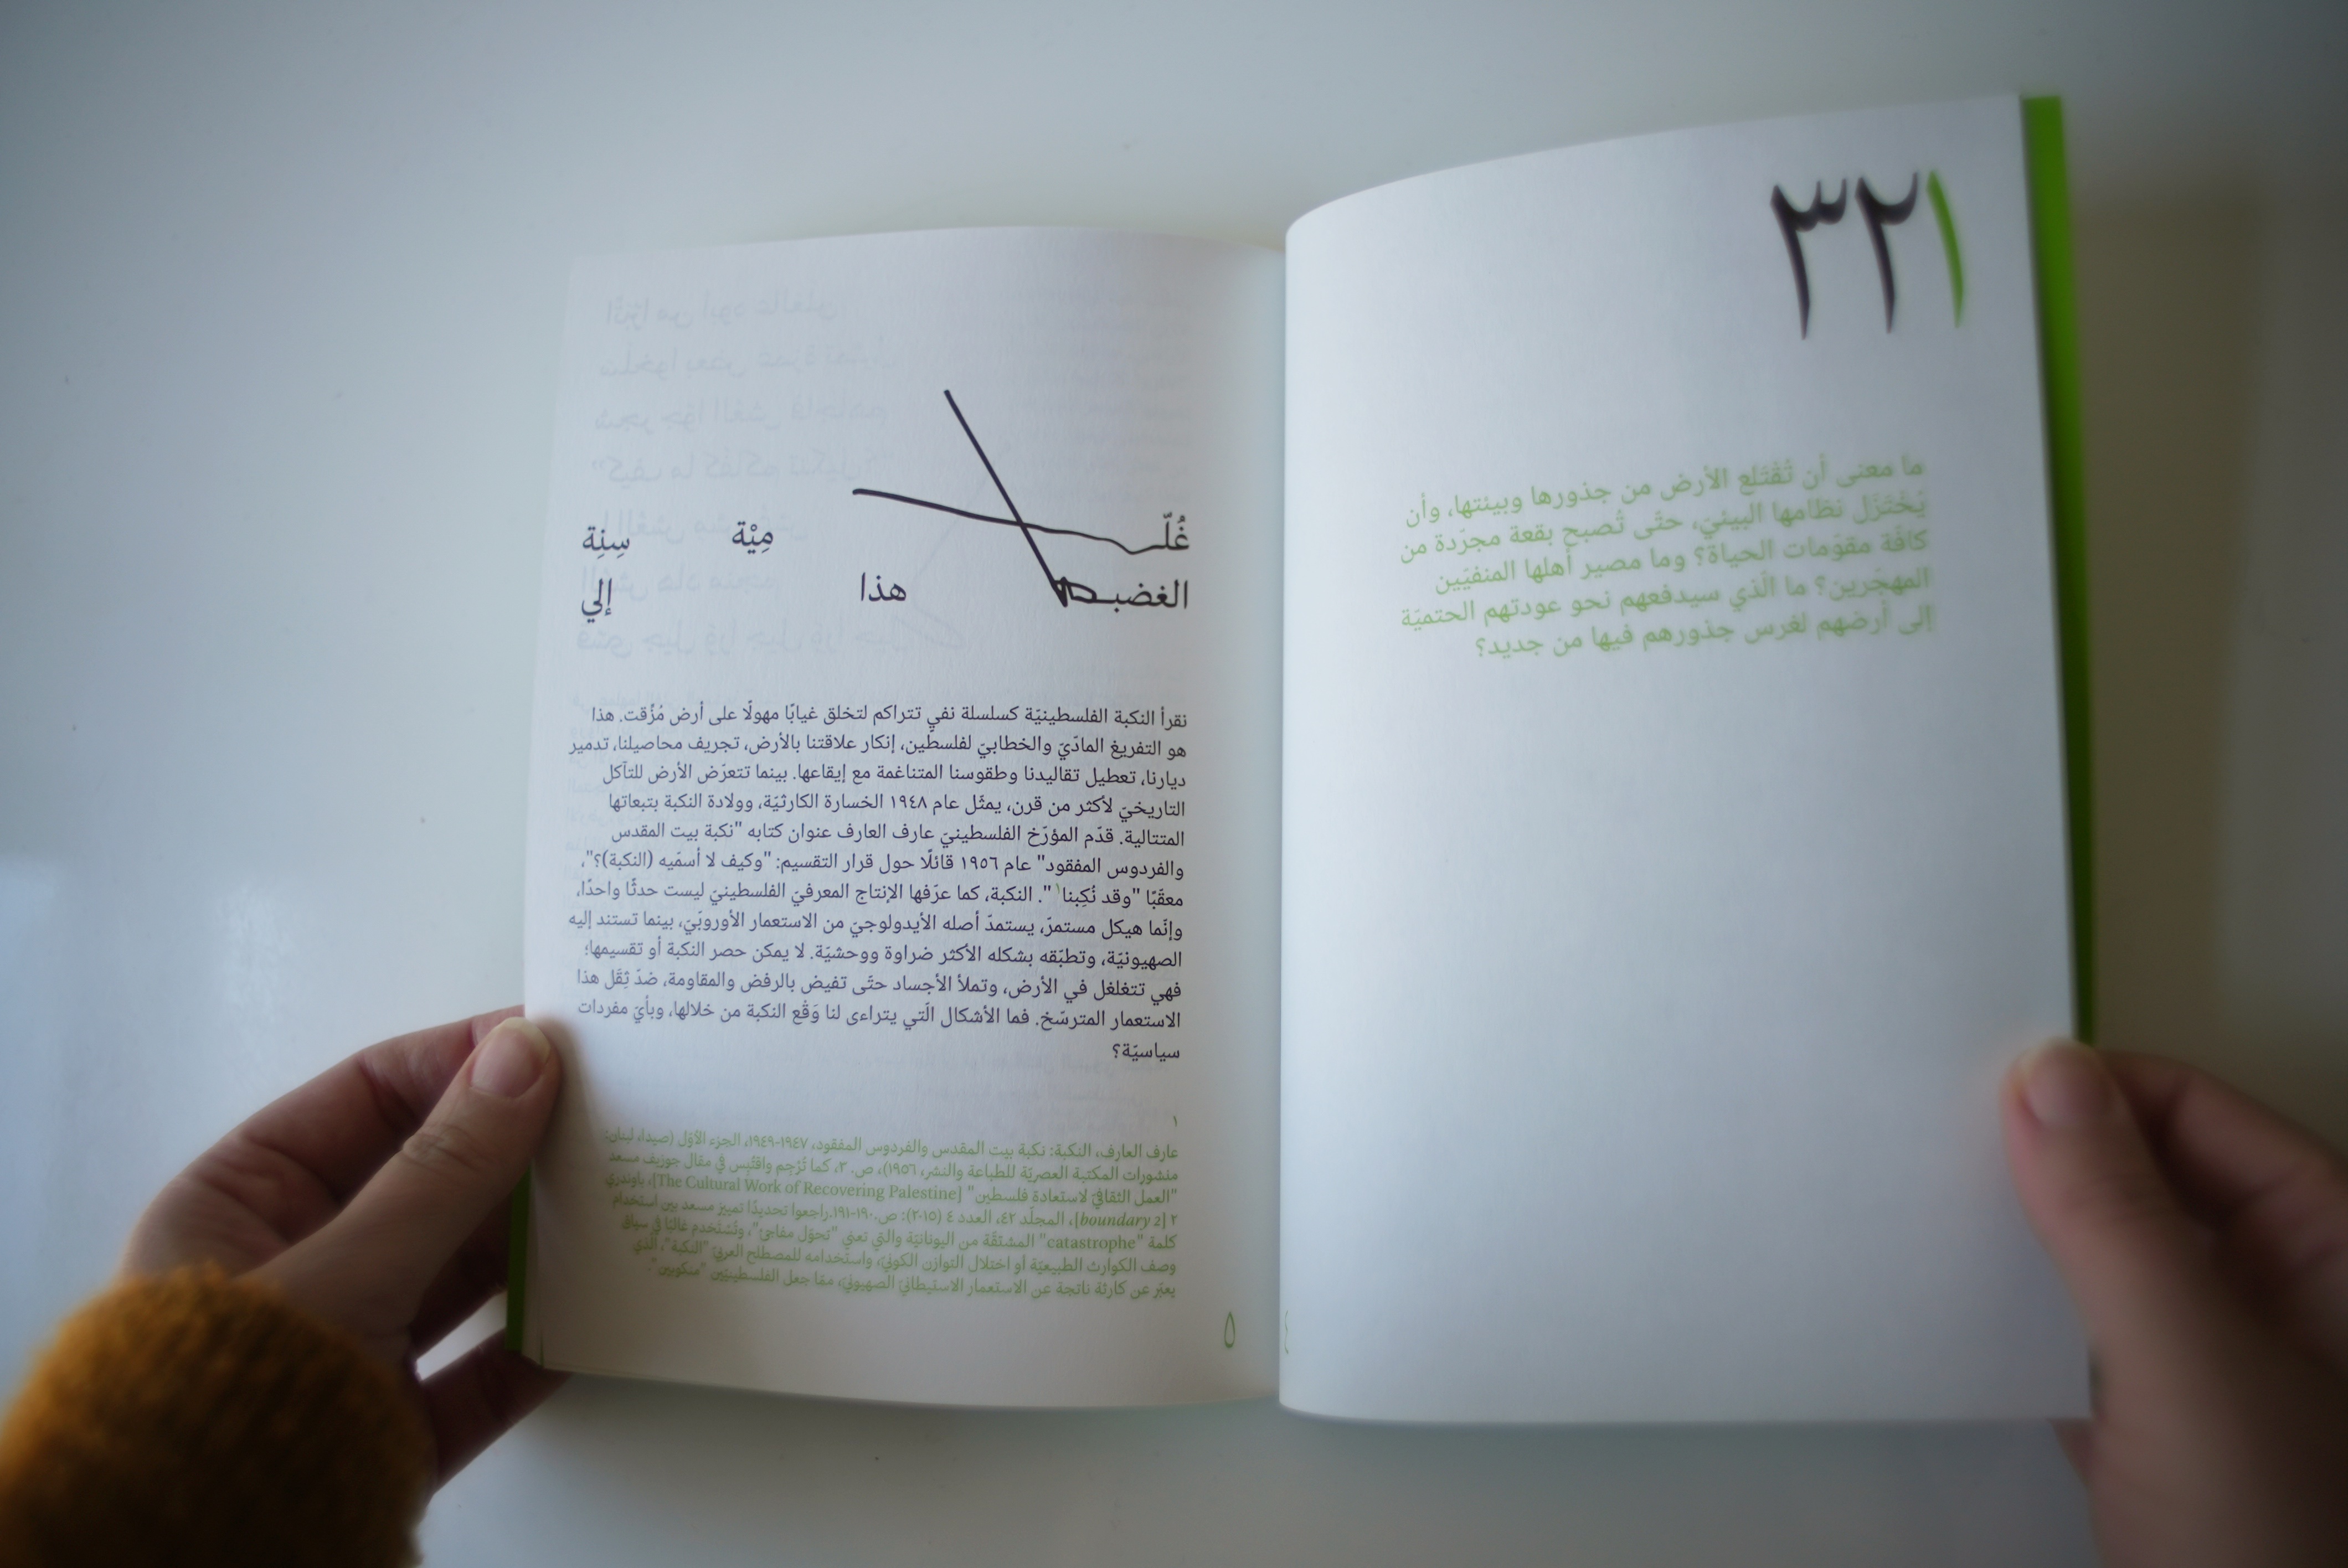 ١٢٣
ما معنى أن تُقْتَلع الأرض من جذورها وبيئتها، وأن
يُخْتَزَل نظامها البيئيّ، حتّى تُصبح بقعة مجرّدة من
كافّة مقوّمات الحياة؟ وما مصير أهلها المنفيّين
المهجّرين؟ ما الّذي سيدفعهم نحو عودتهم الحتميّة
إلى أرضهم لغرس جذورهم فيها من جديد؟
غُلّ مِيْة سِنِة
الغضب هذا إلي
نقرأ النكبة الفلسطينيّة كسلسلة نفيٍ تتراكم لتخلق غيابًا مهولًا على أرض مُزّقت. هذا
هو التفريغ المادّيّ والخطابيّ لفلسطين، إنكار علاقتنا بالأرض، تجريف محاصيلنا، تدمير
ديارنا، تعطيل تقاليدنا وطقوسنا المتناغمة مع إيقاعها. بينما تتعرّض الأرض للتآكل
التاريخيّ لأكثر من قرن، يمثّل عام ١٩٤٨ الخسارة الكارثيّة، وولادة النكبة بتبعاتها
المتتالية. قدّم المؤرّخ الفلسطينيّ عارف العارف عنوان كتابه "نكبة بيت المقدس
والفردوس المفقود" عام ١٩٥٦ قائلًا حول قرار التقسيم: "وكيف لا أسمّيه (النكبة)؟"،
معقّبًا "وقد نُكِبنا١". النكبة، كما عرّفها الإنتاج المعرفيّ الفلسطينيّ ليست حدثًا واحدًا،
وإنّما هيكل مستمرّ، يستمدّ أصله الأيدولوجيّ من الاستعمار الأوروبّيّ، بينما تستند إليه
الصهيونيّة، وتطبّقه بشكله الأكثر ضراوة ووحشيّة. لا يمكن حصر النكبة أو تقسيمها؛
فهي تتغلغل في الأرض، وتملأ الأجساد حتّى تفيض بالرفض والمقاومة، ضدّ ثِقَل هذا
الاستعمار المترسّخ. فما الأشكال الّتي يتراءى لنا وَقْع النكبة من خلالها، وبأيّ مفردات
سياسيّة؟
١
عارف العارف، النكبة: نكبة بيت المقدس والفردوس المفقود، ١٩٤٧-١٩٤٩، الجزء الأوّل (صيدا، لبنان:
منشورات المكتبة العصريّة للطباعة والنشر، ١٩٥٦)، ص. ٣، كما تُرْجِم واقتُبِس في مقال جوزيف مسعد
"العمل الثقافيّ لاستعادة فلسطين" [The Cultural Work of Recovering Palestine]، باوندري
٢ [boundary 2]، المجلّد ٤٢، العدد ٤ (٢٠١٥): ص. ١٩٠-١٩١. راجعوا تحديدًا تمييز مسعد بين استخدام
كلمة "catastrophe" المشتقّة من اليونانيّة والتي تعني "تحوّل مفاجئ"، وتُستخدم غالبًا في سياق
وصف الكوارث الطبيعيّة أو اختلال التوازن الكونيّ، واستخدامه للمصطلح العربيّ "النكبة"، الّذي
يعبّر عن كارثة ناتجة عن الاستعمار الاستيطانيّ الصهيونيّ، ممّا جعل الفلسطينيّين "منكوبين".
٥